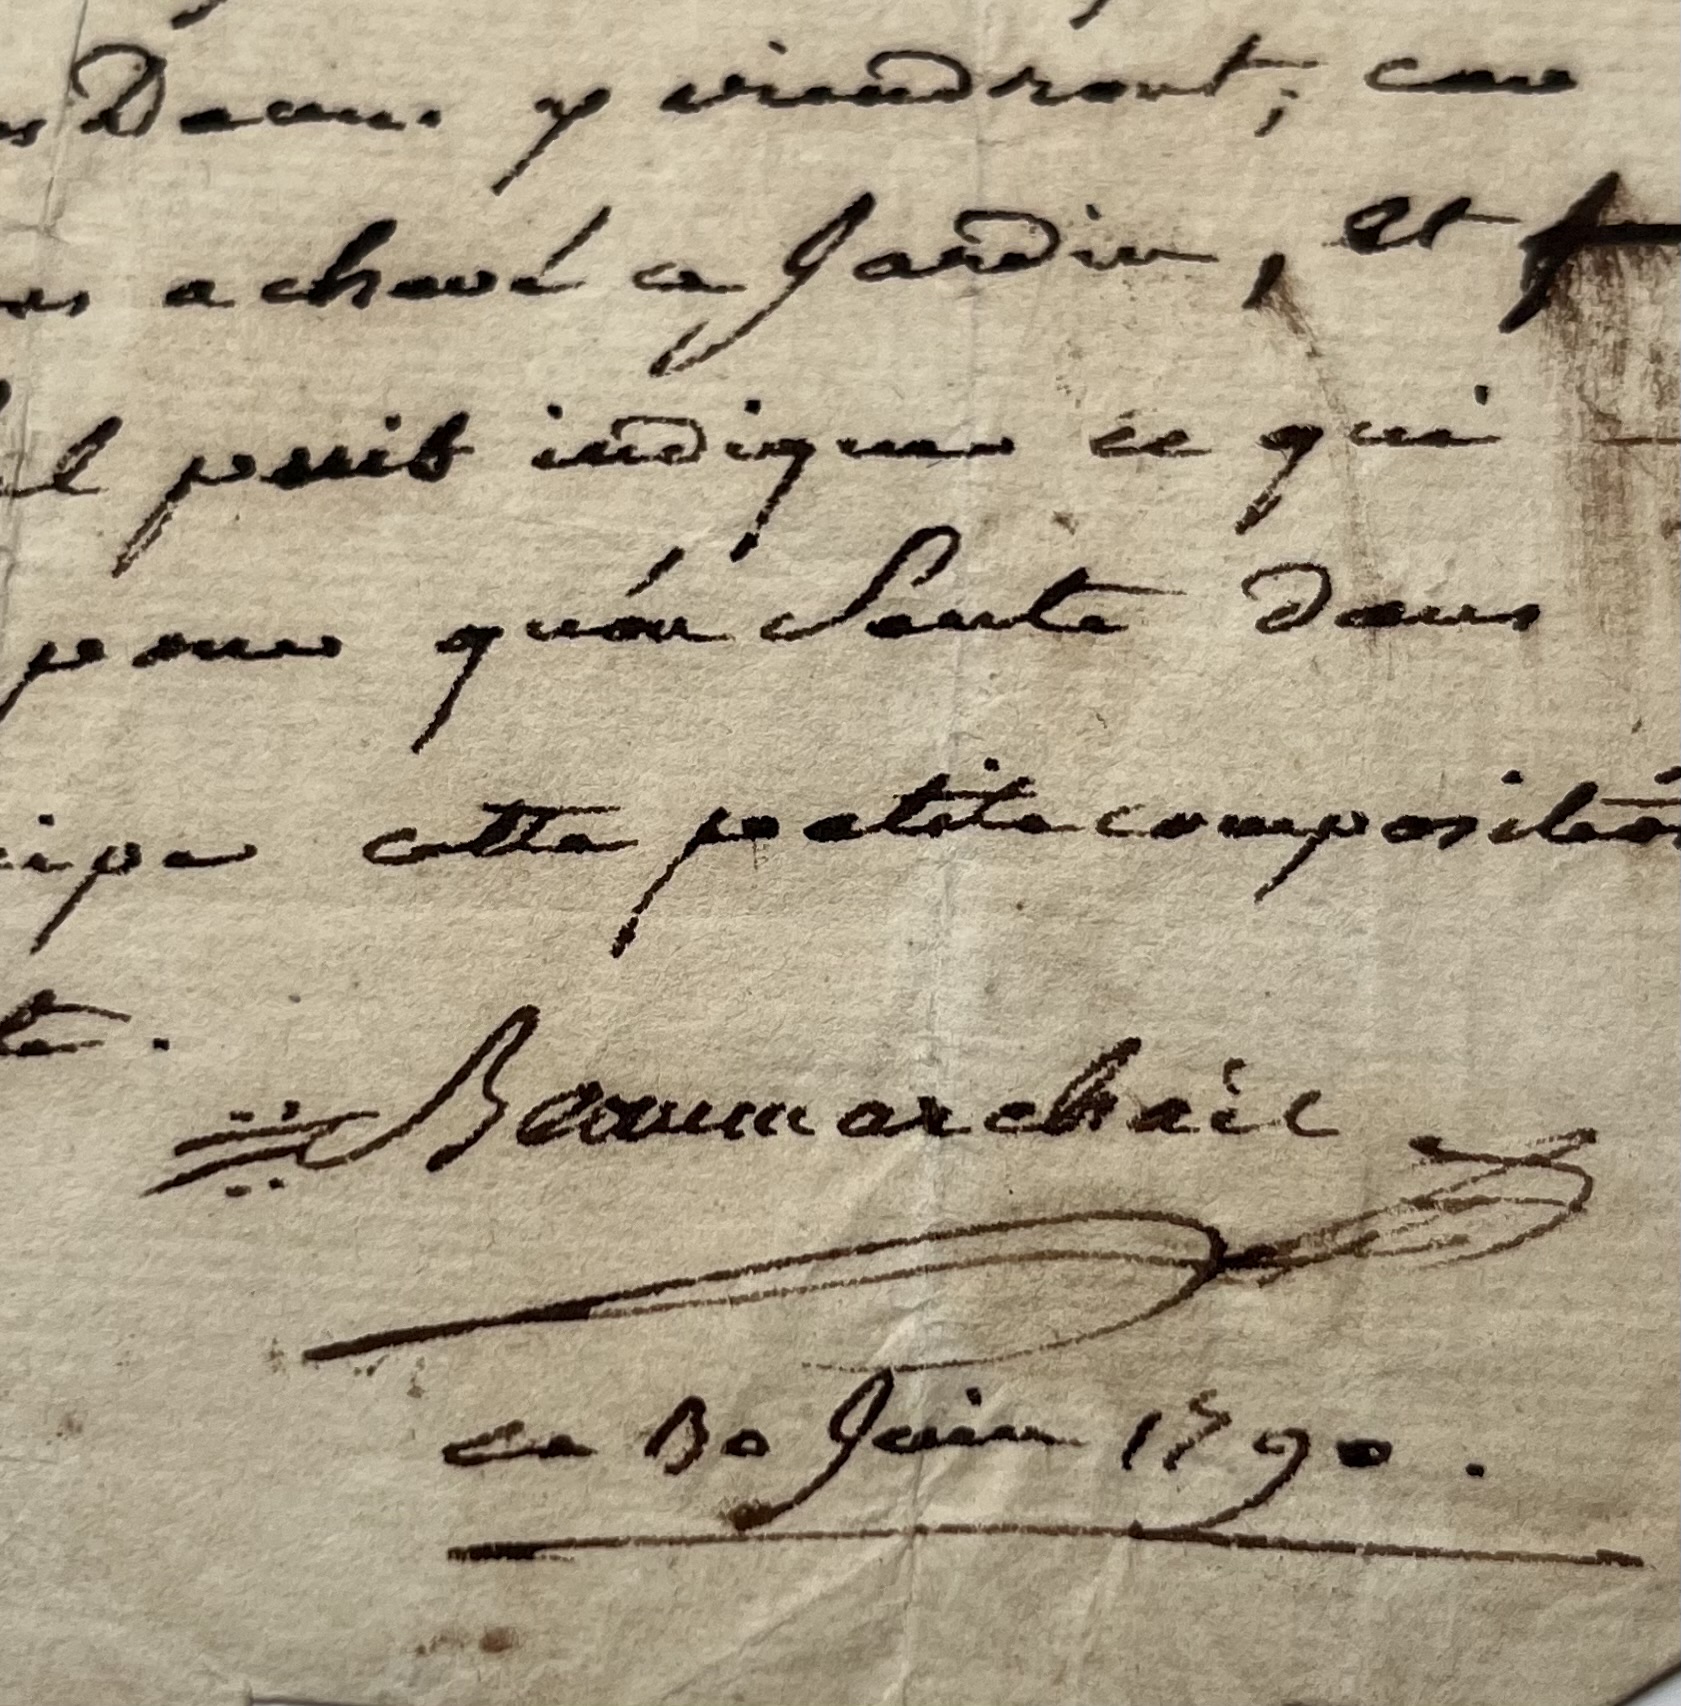 Dame. y viendront; car
achevé ce Jardin, et
puit indiquer ce qui
pour qu'on Sente dans
cipe cette petite composition
te.
Beaumarchais
ce 30 Juin 1790.